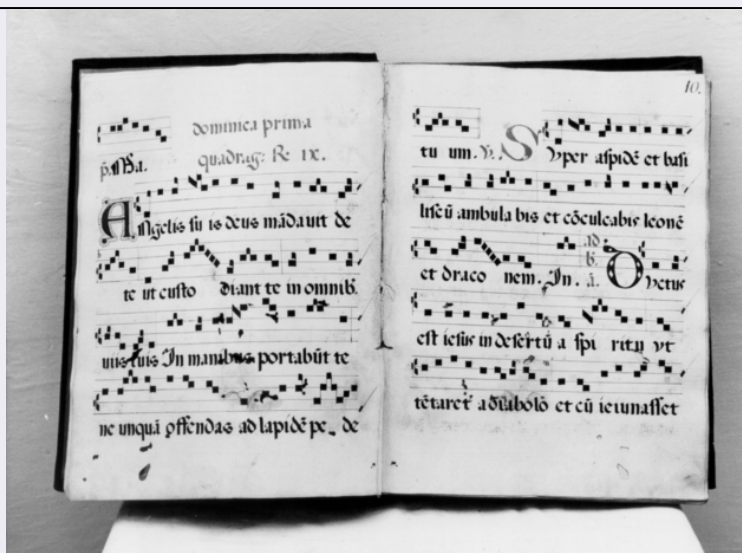 dominica prima
quadrag: R ix.
Angelis su is deus mādauit de
te ut custo diant te in omnib.
uiis tuis In manibus portabūt te
ne unquā offendas ad lapidē pe de
10.
tu um. V. Svper aspidē et basi
liscū ambula bis et cōculcabis leonē
et draco nem. In. ad. b. ā. Dvctus
est iesus in desertū a spi ritu vt
tētaret a diabolo et cū ieiunasset